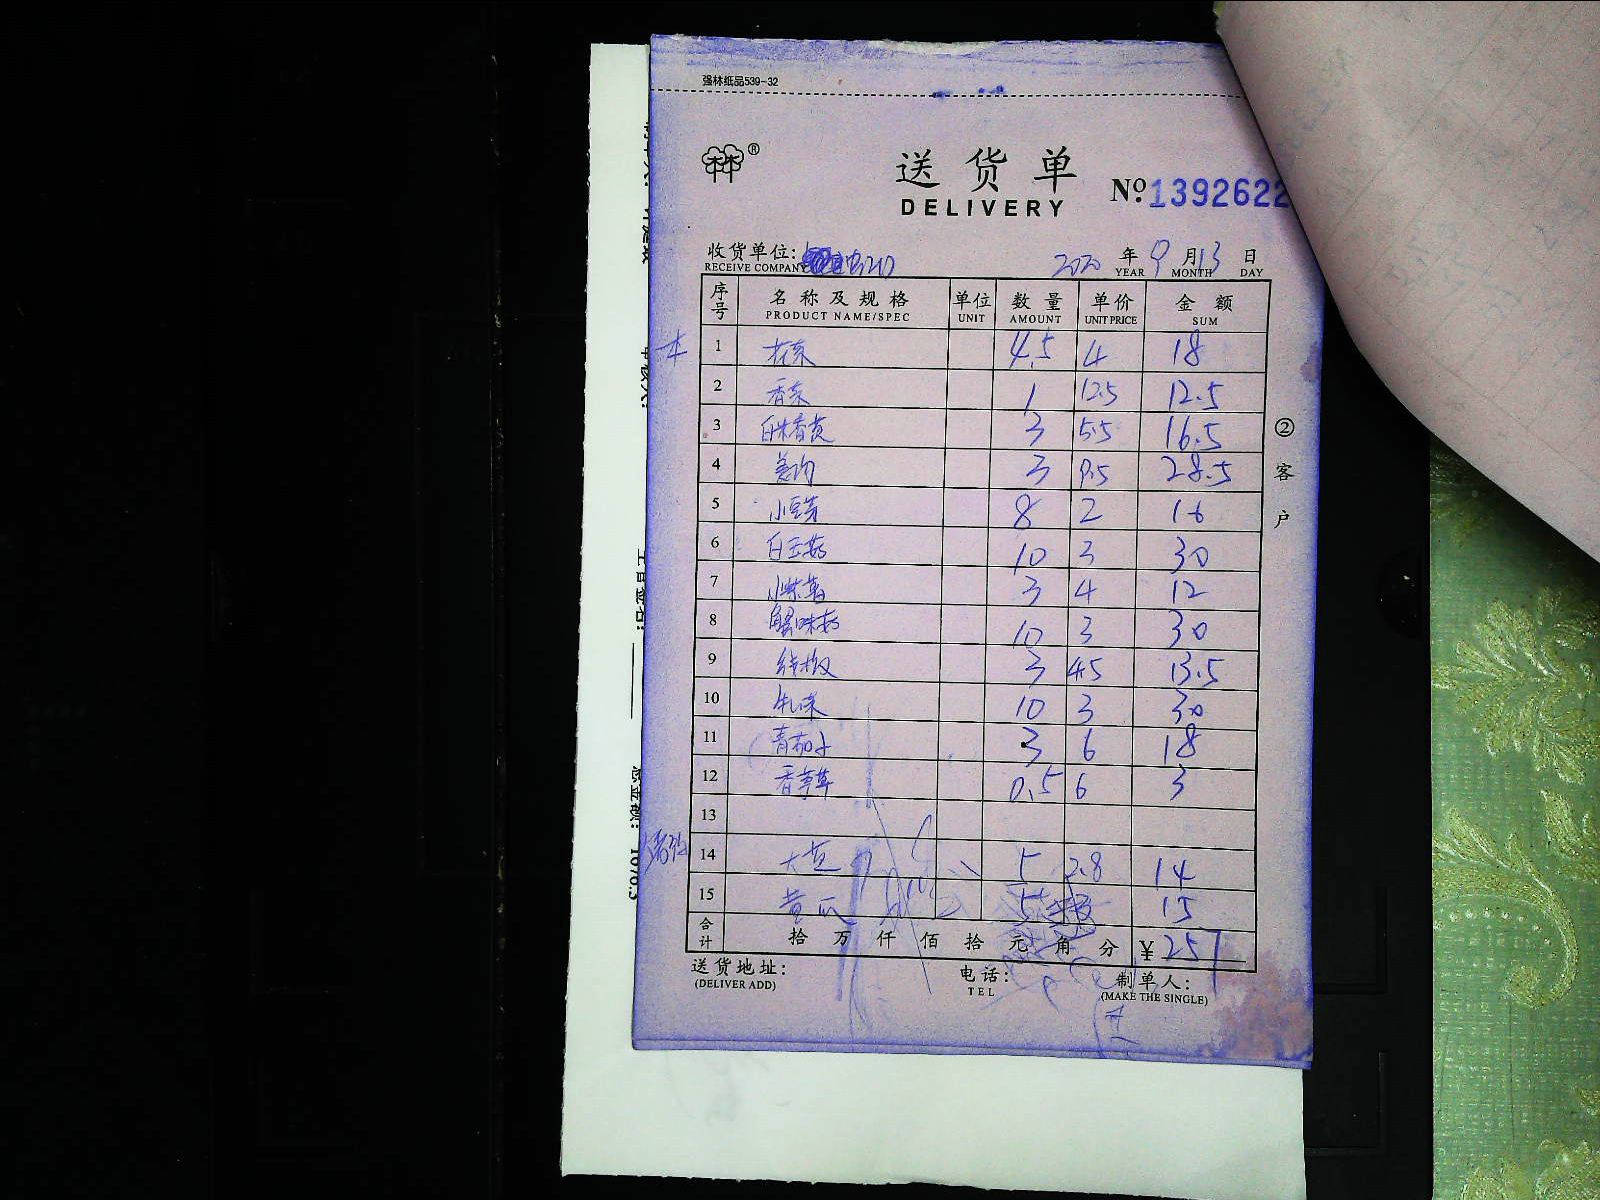 强林纸品539-32
®
送货单
DELIVERY
№:1392622
收货单位:
RECEIVE COMPANY
2020 年 9 月 13 日
YEAR MONTH DAY
序号 名称及规格 单位 数量 单价 金额
PRODUCT NAME/SPEC UNIT AMOUNT UNIT PRICE SUM
1 4.5 4 18
2 香菜 1 12.5 12.5
3 3 5.5 16.5
4 3 9.5 28.5
5 小豆芽 8 2 16
6 白玉菇 10 3 30
7 3 4 12
8 蟹味菇 10 3 30
9 线椒 3 4.5 13.5
10 10 3 30
11 3 6 18
12 香 0.5 6 3
13
14 大 5 2.8 14
15 黄瓜 5 15
合计 拾 万 仟 佰 拾 元 角 分 ¥257
送货地址:
(DELIVER ADD)
电话:
TEL
制单人:
(MAKE THE SINGLE)
②客户